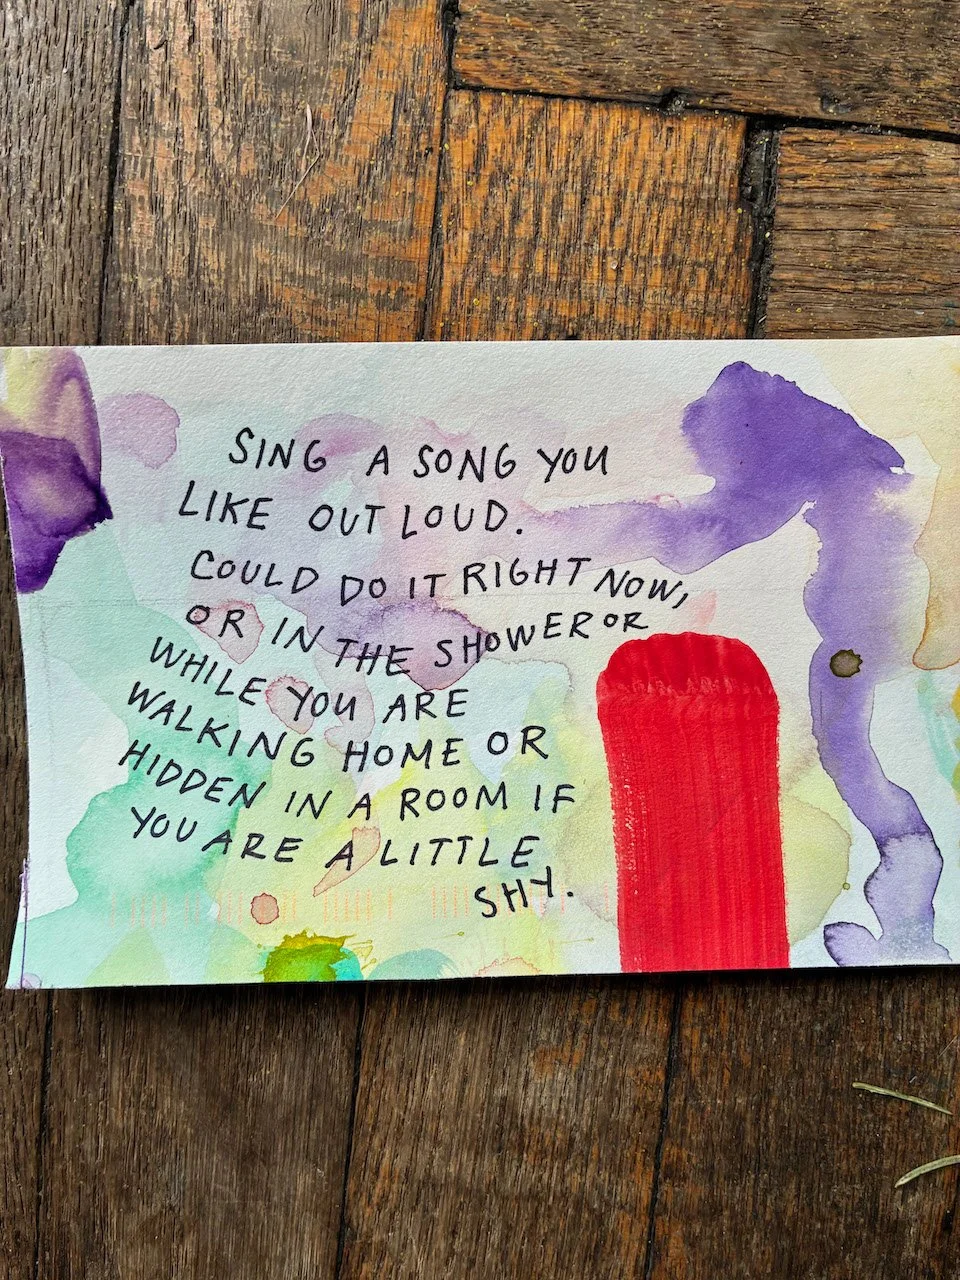 SING A SONG YOU
LIKE OUT LOUD.
COULD DO IT RIGHT NOW,
OR IN THE SHOWER OR
WHILE YOU ARE
WALKING HOME OR
HIDDEN IN A ROOM IF
YOU ARE A LITTLE
SHY.